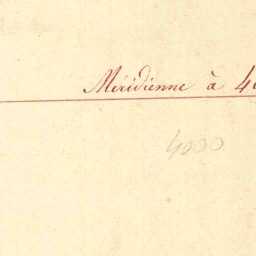 Méridienne à 4
4000